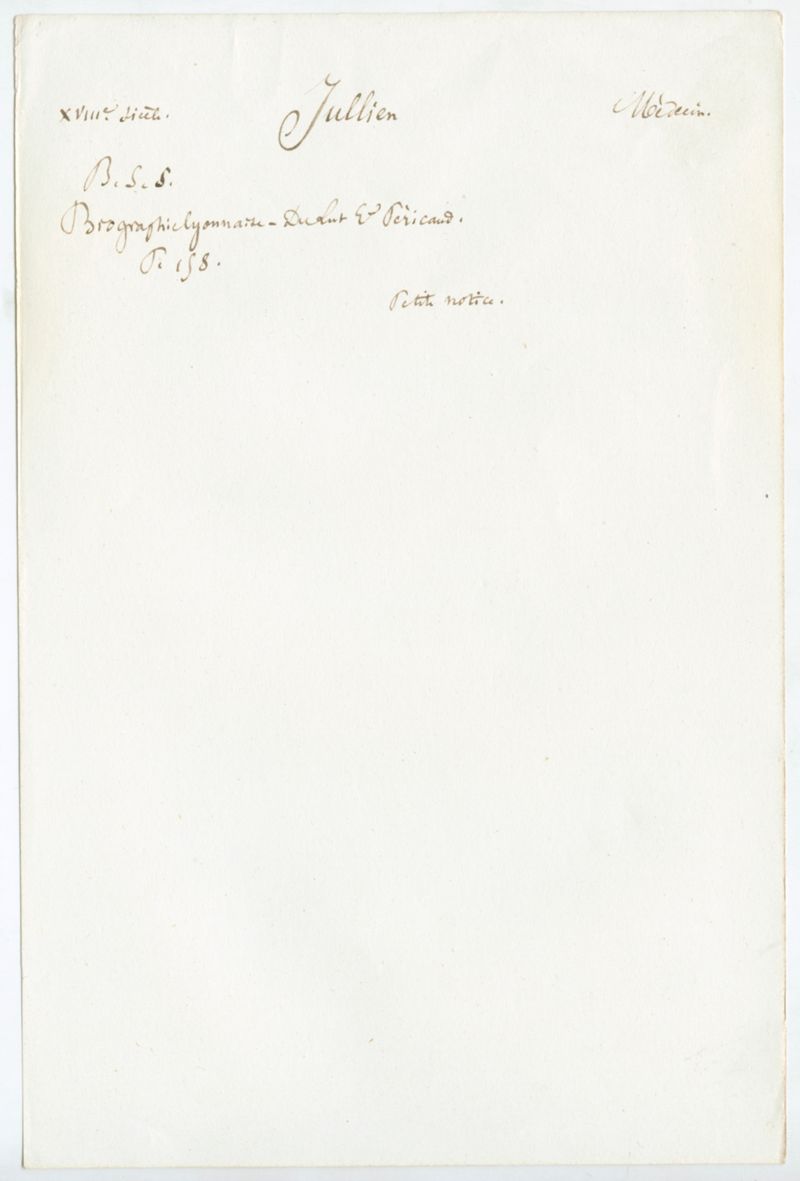 XVIIIe. siècle. Jullien Médecin.
B. S. S.
Biographie lyonnaise - Dulut & Péricaud.
P. 158.
Petite notice.